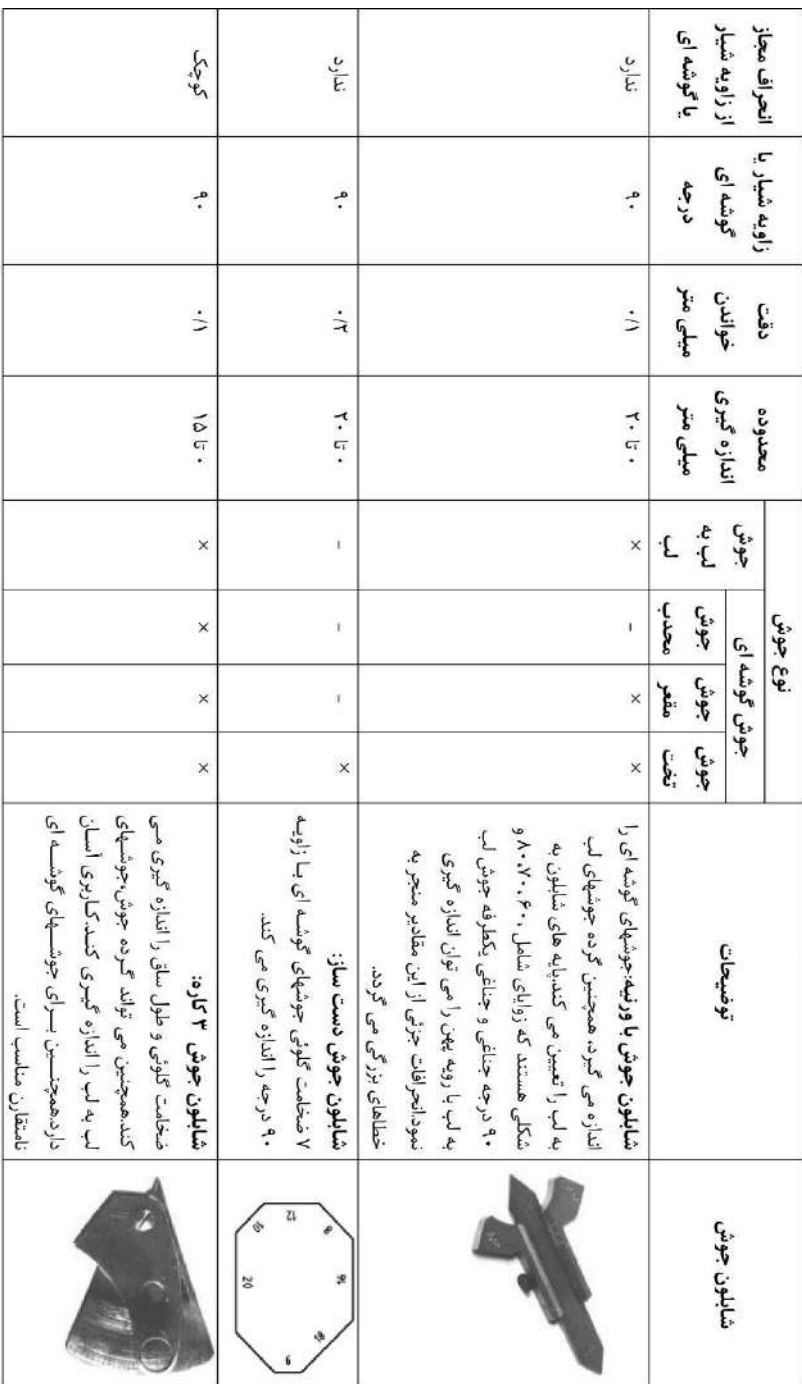 شابلون جوش
توضیحات
نوع جوش
جوش گوشه ای
جوش
تخت
جوش
مقعر
جوش
محدب
جوش
لب به
لب
محدوده
اندازه گیری
میلی متر
دقت
خواندن
میلی متر
زاویه شیار یا
گوشه ای
درجه
انحراف مجاز
از زاویه شیار
یا گوشه ای
شابلون جوش با ورنیه:جوشهای گوشه ای را
اندازه می گیرد، همچنین گرده جوشهای لب
به لب را تعیین می کند.پایه های شابلون به
شکلی هستند که زوایای شامل ۸۰،۷۰،۶۰، و
۹۰ درجه جناغی و جناغی یکطرفه جوش لب
به لب با رویه پهن را می توان اندازه گیری
نمود.انحرافات جزئی از این مقادیر منجر به
خطاهای بزرگی می گردد.
×
×
–
×
۰ تا ۲۰
۰/۱
۹۰
ندارد
12
8
10
16
20
شابلون جوش دست ساز:
۷ ضخامت گلوئی جوشهای گوشه ای با زاویه
۹۰ درجه را اندازه گیری می کند.
×
–
–
–
۰ تا ۲۰
۰/۲
۹۰
ندارد
شابلون جوش ۳ کاره:
ضخامت گلوئی و طول ساق را اندازه گیری می
کند.همچنین می تواند گرده جوش،جوشهای
لب به لب را اندازه گیری کند.کاربری آسان
دارد.همچنین برای جوشهای گوشه ای
نامتقارن مناسب است.
×
×
×
×
۰ تا ۱۵
۰/۱
۹۰
کوچک